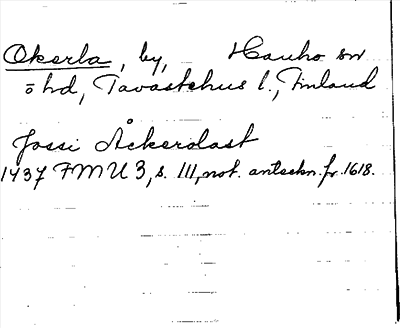 Okerla, by, Hauho sn
ö hd, Tavastehus l., Finland
Jossi Åkerolast
1437 FMU 3, s. 111, not. anteckn. fr. 1618.